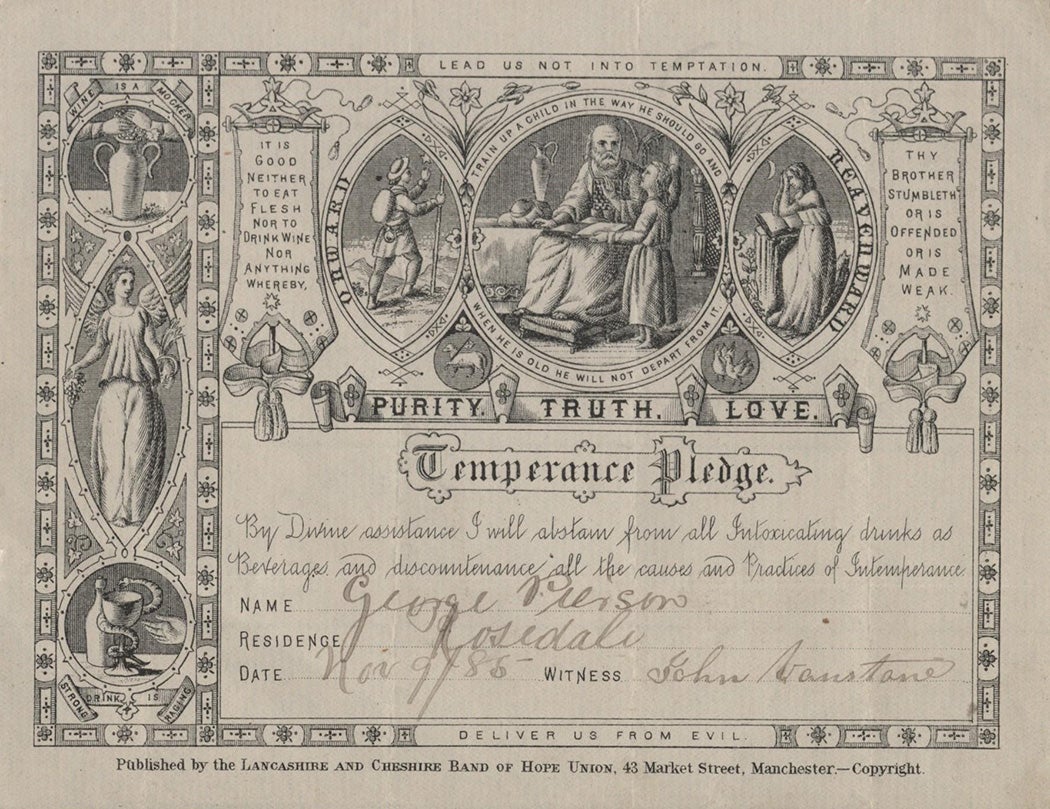 LEAD US NOT INTO TEMPTATION.
WINE IS A MOCKER
IT IS
GOOD
NEITHER
TO EAT
FLESH
NOR TO
DRINK WINE
NOR
ANYTHING
WHEREBY,
ONWARD
TRAIN UP A CHILD IN THE WAY HE SHOULD GO AND
WHEN HE IS OLD HE WILL NOT DEPART FROM IT.
HEAVENWARD
THY
BROTHER
STUMBLETH
OR IS
OFFENDED
OR IS
MADE
WEAK.
PURITY. TRUTH. LOVE.
Temperance Pledge.
By Divine assistance I will abstain from all Intoxicating drinks as
Beverages and discountenance all the causes and Practices of Intemperance
NAME George Pierson
RESIDENCE Rosedale
DATE Nov 9/85 WITNESS John Vanstone
STRONG DRINK IS RAGING
DELIVER US FROM EVIL.
Published by the LANCASHIRE AND CHESHIRE BAND OF HOPE UNION, 43 Market Street, Manchester.—Copyright.